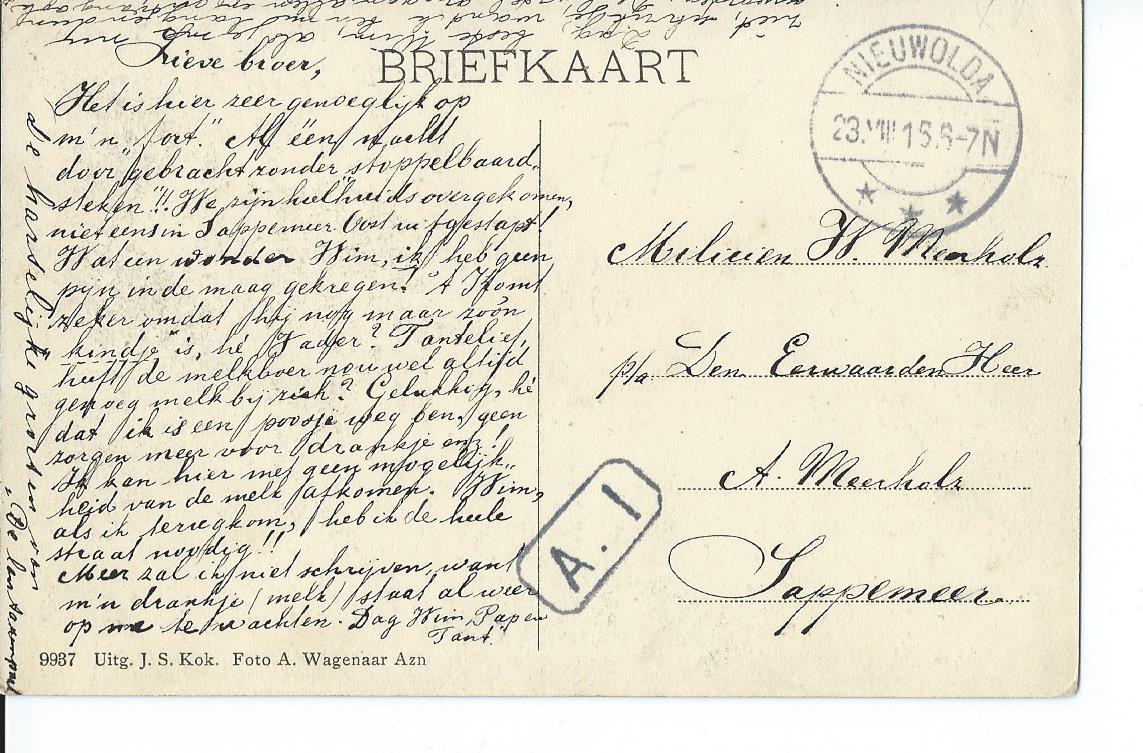 BRIEFKAART
Lieve broer,
Het is hier zeer genoeglijk op
m'n "fort." Al één nacht
door gebracht zonder stoppelbaard-
steken"!! We zijn heelhuids overgekomen,
niet eens in Sappemeer Oost uitgestapt!
Wat een wonder Wim, ik heb geen
pijn in de maag gekregen! 't Komt
zeker omdat hij nog maar zóó'n
kindje" is, hé Vader? Tantelief,
heeft de melkboer nou wel altijd
genoeg melk bij zich? Gelukkig, hé
dat ik is een poosje weg ben, geen
zorgen meer voor drankje enz!
Ik kan hier met geen mogelijk-
heid van de melk afkomen. Wim,
als ik terugkom, heb ik de heele
straat noodig!!
Meer zal ik niet schrijven, want
m'n drankje (melk) staat al weer
op me te wachten. Dag Wim, Pap en
Tant.
de hartelijke groeten van
De
Dag beste Wim, als je me
NIEUWOLDA
23.VIII.15.6-7N
Milicien W. Meerholz
p/a Den Eerwaarden Heer
A. Meerholz
Sappemeer.
A. I
9937 Uitg. J. S. Kok. Foto A. Wagenaar Azn